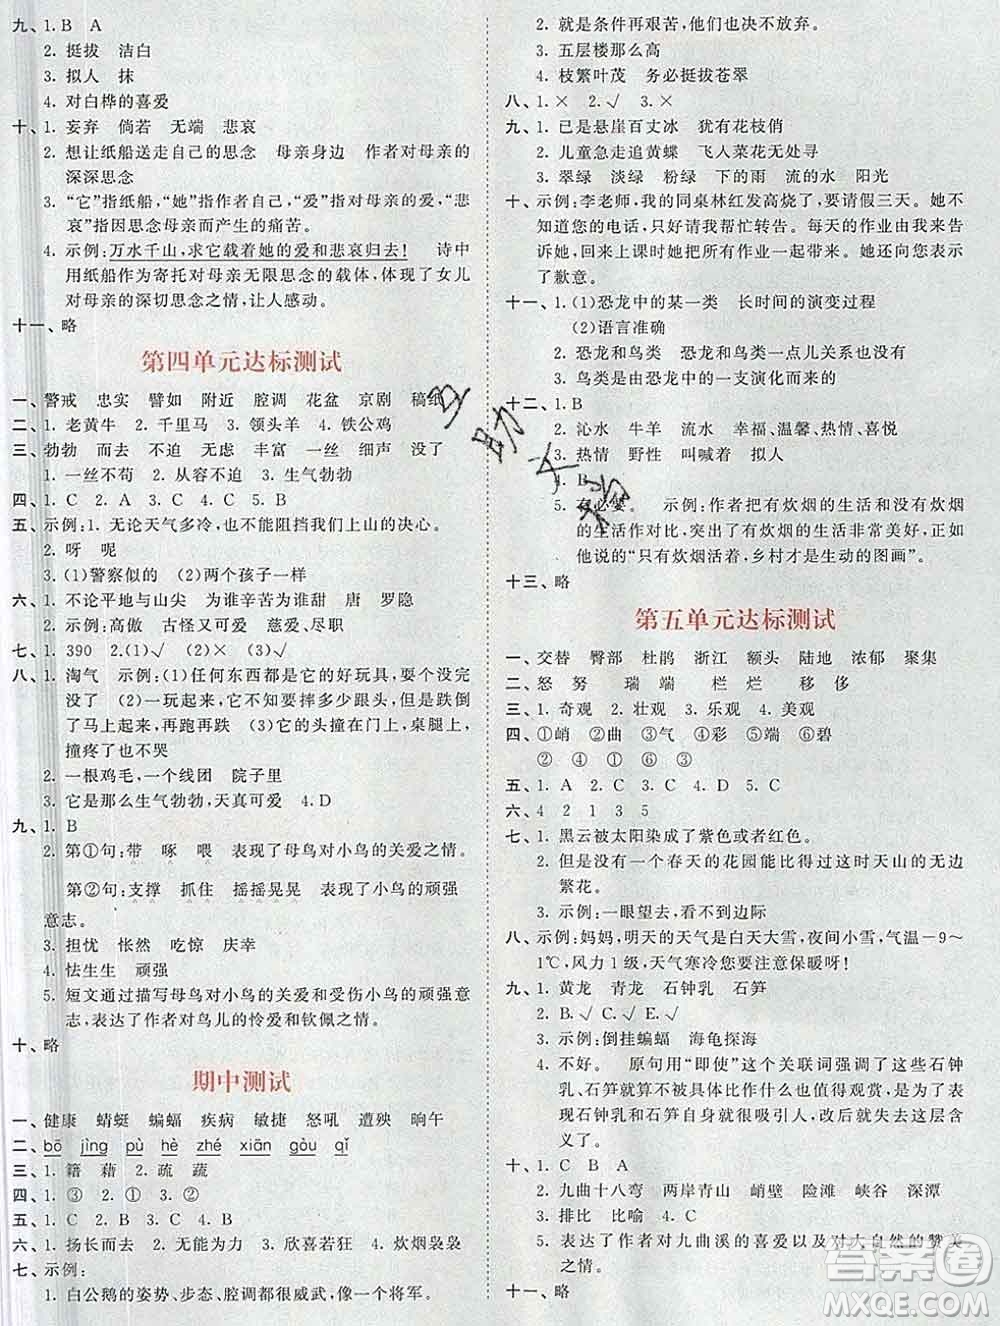 九、1. B A
2. 挺拔 洁白
3. 拟人 抹
4. 对白桦的喜爱
十、1. 妄弃 倘若 无端 悲哀
2. 想让纸船送走自己的思念 母亲身边 作者对母亲的
深深思念
3. “它”指纸船,“她”指作者自己,“爱”指母爱,“悲
哀”指因思念母亲而产生的痛苦。
4. 示例:万水千山,求它载着她的爱和悲哀归去! 诗中
用纸船作为寄托对母亲无限思念的载体,体现了女儿
对母亲的深切思念之情,让人感动。
十一、略
第四单元达标测试
一、警戒 忠实 譬如 附近 腔调 花盆 京剧 稿纸
二、1. 老黄牛 2. 千里马 3. 领头羊 4. 铁公鸡
三、勃勃 而去 不迫 无虑 丰富 一丝 细声 没了
1. 一丝不苟 2. 从容不迫 3. 生气勃勃
四、1. C 2. A 3. C 4. C 5. B
五、示例:1. 无论天气多冷,也不能阻挡我们上山的决心。
2. 呀 呢
3. (1)警察似的 (2)两个孩子一样
六、1. 不论平地与山尖 为谁辛苦为谁甜 唐 罗隐
2. 示例:高傲 古怪又可爱 慈爱、尽职
七、1. 390 2.(1)√ (2)× (3)√
八、1. 淘气 示例:(1)任何东西都是它的好玩具,要个没完
没了 (2)一玩起来,不知要摔多少跟头,但是跌倒
了马上起来,再跑再跌 (3)它的头撞在门上,桌腿上,
撞疼了也不哭
2. 一根鸡毛,一个线团 院子里
3. 它是那么生气勃勃,天真可爱 4. D
九、1. B
2. 第①句:带 啄 喂 表现了母鸟对小鸟的关爱之情。
第②句:支撑 抓住 摇摇晃晃 表现了小鸟的顽强
意志。
3. 担忧 怅然 吃惊 庆幸
4. 怯生生 顽强
5. 短文通过描写母鸟对小鸟的关爱和受伤小鸟的顽强意
志,表达了作者对鸟儿的怜爱和钦佩之情。
十、略
期中测试
一、健康 蜻蜓 蝙蝠 疾病 敏捷 怒吼 遭殃 晌午
二、bō jìng pù hè zhé xiān gòu qǐ
三、1. 籍 藉 2. 疏 蔬
四、1. ③ 2. ① 3. ②
五、1. C 2. B 3. D 4. C 5. C
六、1. 扬长而去 2. 无能为力 3. 欣喜若狂 4. 炊烟袅袅
七、示例:
1. 白公鹅的姿势、步态、腔调都很威武,像一个将军。
2. 就是条件再艰苦,他们也不放弃。
3. 五层楼那么高
4. 枝繁叶茂 务必挺拔苍翠
八、1. × 2. √ 3. ×
九、1. 已是悬崖百丈冰 犹有花枝俏
2. 儿童急走追黄蝶 飞入菜花无处寻
3. 翠绿 淡绿 粉绿 下的雨 流的水 阳光
十、示例:李老师,我的同桌林红发高烧了,要请假三天。她不
知道您的电话,只好请我帮忙转告。每天的作业由我来告
诉她,回来上课时她把所有作业一起带来。她还向您表
示了歉意。
十一、1. (1)恐龙中的某一类 长时间的演变过程
(2)语言准确
2. 恐龙和鸟类 恐龙和鸟类一点儿关系也没有
3. 鸟类是由恐龙中的一支演化而来的
十二、1. B
2. 沁水 牛羊 流水 幸福、温馨、热情、喜悦
3. 热情 野性 叫喊着 拟人
4. B
5. 有必要。 示例:作者把有炊烟的生活和没有炊烟
的生活作对比,突出了有炊烟的生活非常美好,正如
他说的“只有炊烟活着,乡村才是生动的图画”。
十三、略
第五单元达标测试
一、交替 臀部 杜鹃 浙江 额头 陆地 浓郁 聚集
二、怒 努 瑞 端 栏 烂 移 侈
三、1. 奇观 2. 壮观 3. 乐观 4. 美观
四、①峭 ②曲 ③气 ④彩 ⑤端 ⑥碧
② ④ ① ⑥ ③
五、1. A 2. C 3. C 4. B
六、4 2 1 3 5
七、1. 黑云被太阳染成了紫色或者红色。
2. 但是没有一个春天的花园能比得过这时天山的无边
繁花。
3. 示例:一眼望去,看不到边际
八、示例:妈妈,明天的天气是白天大雪,夜间小雪,气温-9~
1℃,风力1级,天气寒冷您要注意保暖呀!
九、1. 黄龙 青龙 石钟乳 石笋
2. B.√ C.√ E.√
3. 示例:倒挂蝙蝠 海龟探海
4. 不好。 原句用“即使”这个关联词强调了这些石钟
乳、石笋就算不具体像什么也值得观赏,是为了突出
石钟乳和石笋自身就很吸引人,改成失去了原句的含
义了。
十、1. C B A
2. 九曲十八弯 两岸青山 峭壁 险滩 峡谷 深潭
3. 排比 比喻 4. C
5. 表达了作者对九曲溪的喜爱以及对大自然的赞美
之情。
十一、略
互助文稿
答案圈
MXQE.COM